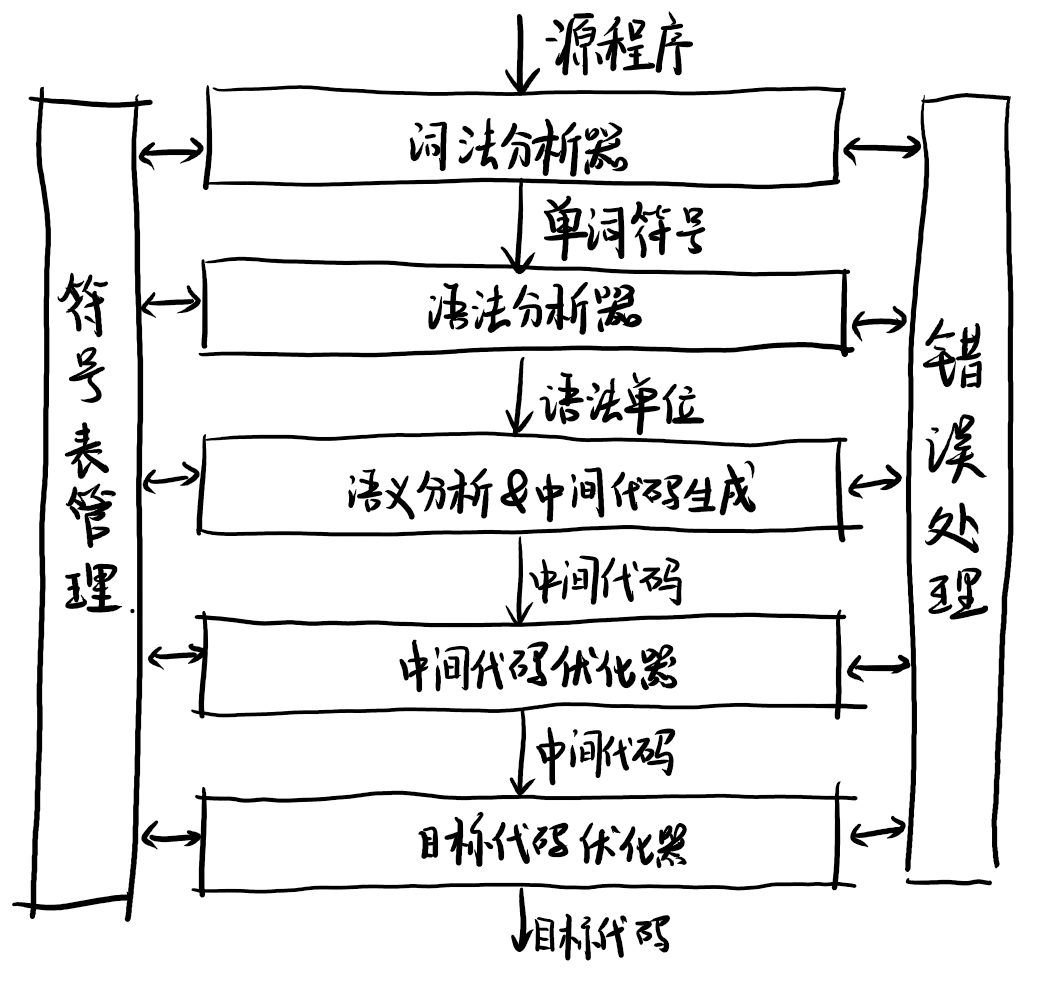 源程序
词法分析器
单词符号
语法分析器
语法单位
语义分析&中间代码生成
中间代码
中间代码优化器
中间代码
目标代码优化器
目标代码
符号表管理
错误处理